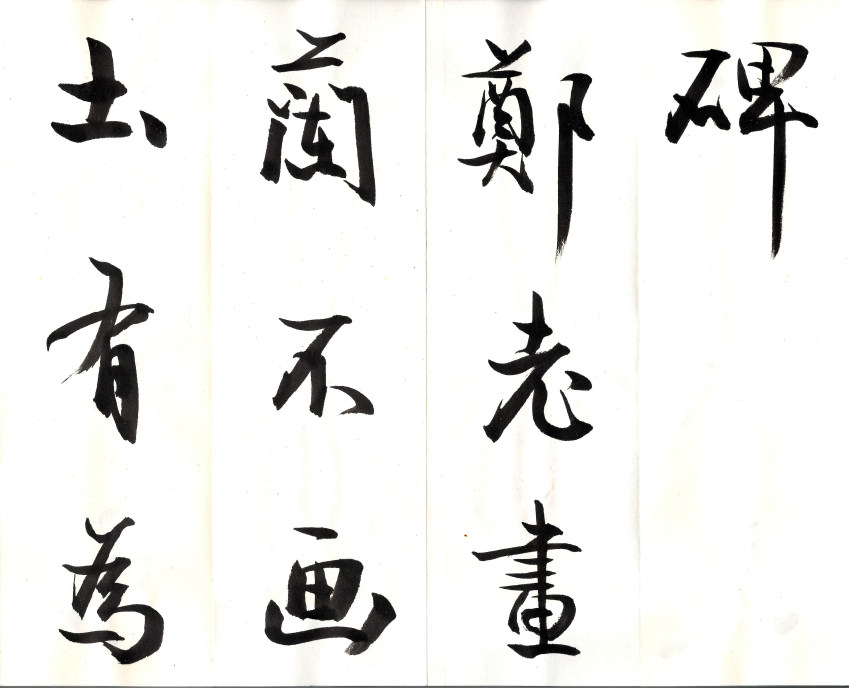 碑
鄭老畫
蘭不画
土有為